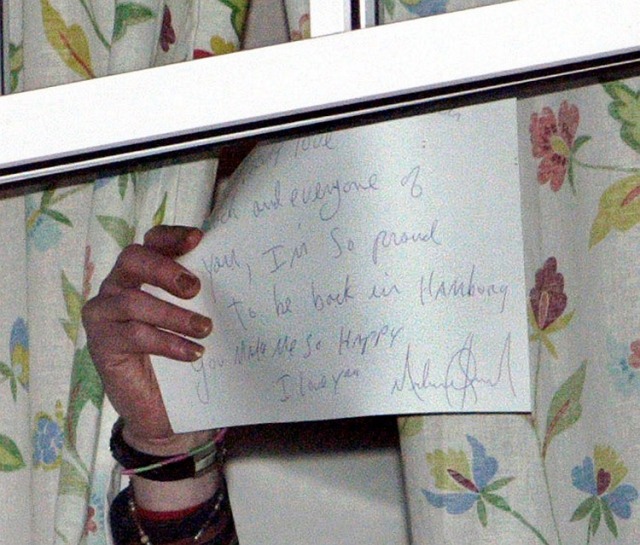 love
and everyone of
you, I'm so proud
to be back in Hamburg
You Make Me So Happy
I love you